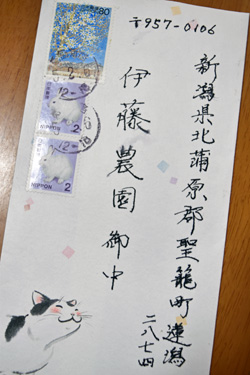 〒957-0106
新潟県北蒲原郡聖籠町蓮潟
二八七四
伊藤農園御中
80
2
NIPPON
2
NIPPON